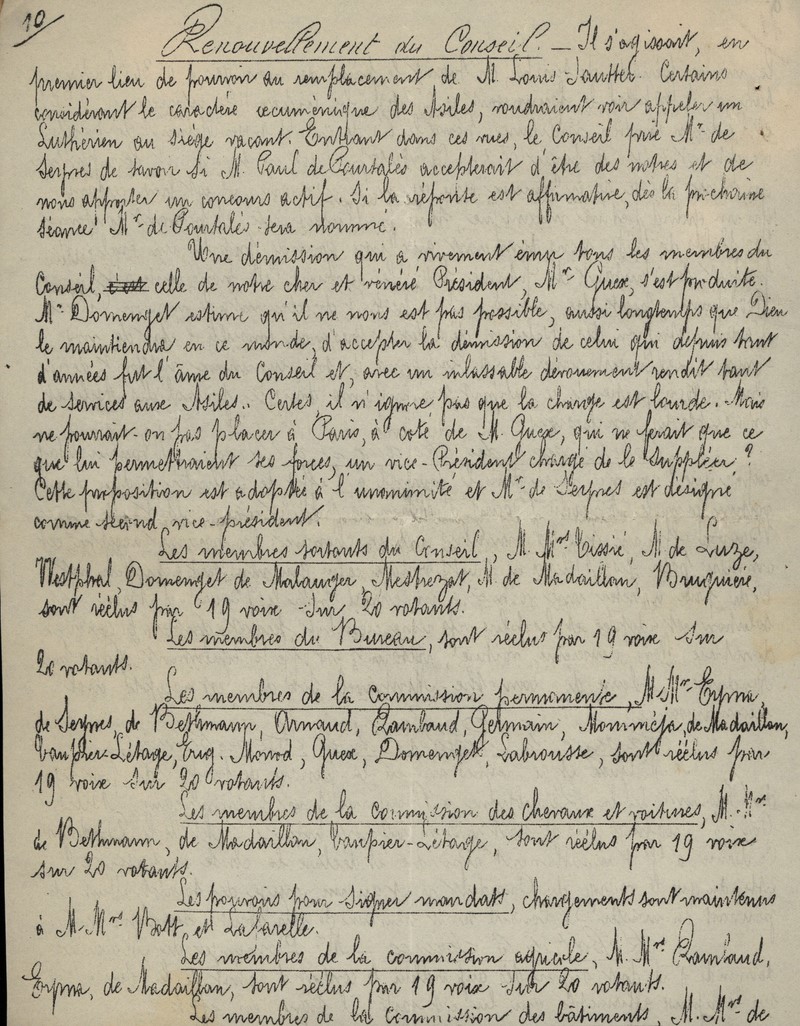 10/
Renouvellement du Conseil. — Il s'agissait, en
premier lieu de pourvoir au remplacement de M. Louis Sautter. Certains
considérant le caractère œcuménique des Asiles, voudraient voir appeler un
Luthérien au siège vacant. Entrant dans ces vues, le Conseil prie Mr de
Serpes de savoir si M. Paul de Pourtalès accepterait d'être des nôtres et de
nous apporter un concours actif. Si la réponse est affirmative, dès la prochaine
séance Mr de Pourtalès sera nommé.
Une démission qui a vivement ému tous les membres du
Conseil, c'est celle de notre cher et vénéré Président, Mr Guex, s'est produite.
Mr Domenget estime qu'il ne nous est pas possible, aussi longtemps que Dieu
le maintiendra en ce monde, d'accepter la démission de celui qui depuis tant
d'années fut l'âme du Conseil et, avec un inlassable dévouement rendit tant
de services aux Asiles. Certes, il n'ignore pas que la charge est lourde. Mais
ne pourrait-on pas placer à Paris, à coté de M. Guex, qui ne ferait que ce
que lui permettraient ses forces, un vice-Président chargé de le suppléer ?
Cette proposition est adoptée à l'unanimité et Mr de Serpes est désigné
comme second vice-président.
Les membres sortants du Conseil, M. Mrs Tissié, M de Luze,
Westphal, Domenget de Malauger, Mestrezat, M. de Madaillan, Bruguière,
sont réélus par 19 voix sur 20 votants.
Les membres du Bureau, sont réélus par 19 voix sur
20 votants.
Les membres de la commission permanente, M. Mrs Eyma,
de Serpes, de Bethmann, Arnaud, Rambaud, Germain, Momméja, de Madaillan,
Vaupier-Létage, Eug. Monod, Guex, Domenget, Labrousse, sont réélus par
19 voix sur 20 votants.
Les membres de la commission des chevaux et voitures, M. Mrs
de Bethmann, de Madaillan, Vaupier-Létage, sont réélus par 19 voix
sur 20 votants.
Les pouvoirs pour signer mandats, chargements sont maintenus
à M. Mrs Bott et Lafarelle.
Les membres de la commission agricole, M. Mrs Rambaud,
Eyma, de Madaillan, sont réélus par 19 voix sur 20 votants.
Les membres de la Commission des bâtiments, M. Mrs de